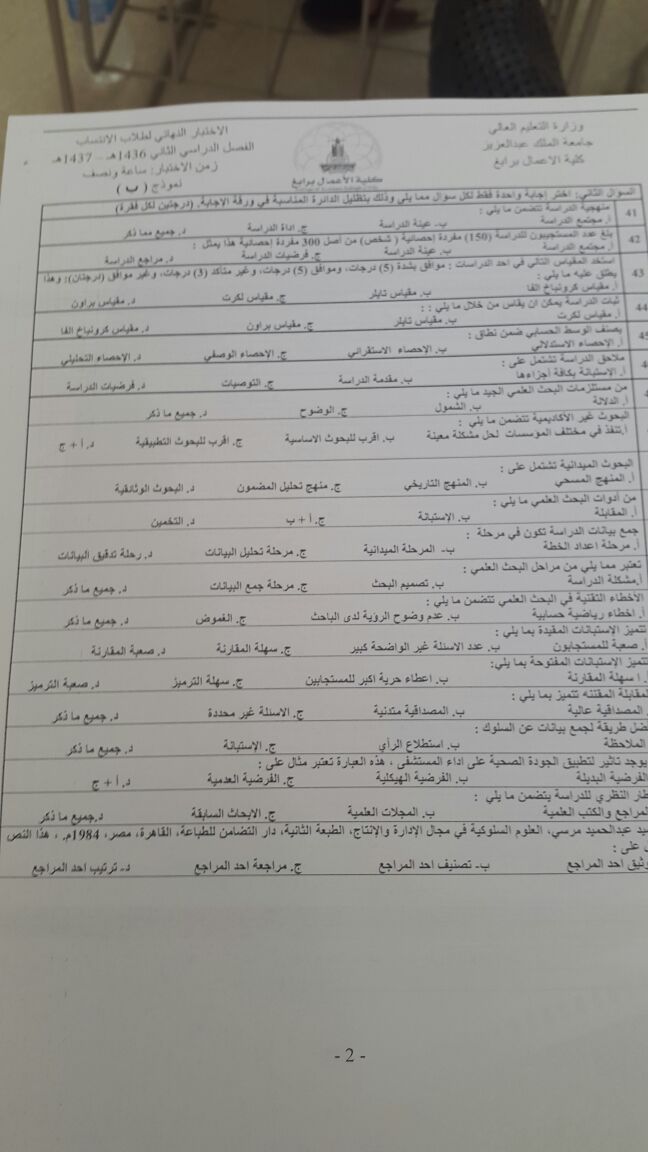 وزارة التعليم العالي
جامعة الملك عبدالعزيز
كلية الاعمال برابغ
كلية الأعمال برابغ
الاختبار النهائي لطلاب الانتساب
الفصل الدراسي الثاني 1436هـ – 1437هـ
زمن الاختبار: ساعة ونصف
نموذج ( ب )
السؤال الثاني: اختر إجابة واحدة فقط لكل سؤال مما يلي وذلك بتظليل الدائرة المناسبة في ورقة الإجابة. (درجتين لكل فقرة)
41 منهجية الدراسة تتضمن ما يلي :
أ. مجتمع الدراسة ب- عينة الدراسة ج. اداة الدراسة د. جميع مما ذكر
42 بلغ عدد المستجيبون للدراسة (150) مفردة إحصائية ( شخص) من أصل 300 مفردة إحصائية هذا يمثل :
أ. مجتمع الدراسة ب. عينة الدراسة ج. فرضيات الدراسة د. مراجع الدراسة
43 استخد المقياس التالي في احد الدراسات : موافق بشدة (5) درجات، وموافق (5) درجات، وغير متأكد (3) درجات، وغير موافق (درجتان): وهذا
يطلق عليه ما يلي :
أ. مقياس كرونباخ الفا ب. مقياس تايلر ج. مقياس لكرت د. مقياس براون
44 ثبات الدراسة يمكن ان يقاس من خلال ما يلي : :
أ. مقياس لكرت ب. مقياس تايلر ج. مقياس براون د. مقياس كرونباخ الفا
يصنف الوسط الحسابي ضمن نطاق :
أ. الإحصاء الاستدلالي ب. الإحصاء الاستقرائي ج. الإحصاء الوصفي د. الإحصاء التحليلي
ملاحق الدراسة تشتمل على :
أ. الإستبانة بكافة أجزاءها ب. مقدمة الدراسة ج. التوصيات د. فرضيات الدراسة
من مستلزمات البحث العلمي الجيد ما يلي :
أ. الدلالة ب. الشمول ج. الوضوح د. جميع ما ذكر
البحوث غير الأكاديمية تتضمن ما يلي :
أ.تنفذ في مختلف المؤسسات لحل مشكلة معينة ب. اقرب للبحوث الاساسية ج. اقرب للبحوث التطبيقية د. أ + ج
البحوث الميدانية تشتمل على :
أ. المنهج المسحي ب. المنهج التاريخي ج. منهج تحليل المضمون د. البحوث الوثائقية
من أدوات البحث العلمي ما يلي :
أ. المقابلة ب. الإستبانة ج. أ + ب د. التخمين
جمع بيانات الدراسة تكون في مرحلة :
أ. مرحلة اعداد الخطة ب- المرحلة الميدانية ج. مرحلة تحليل البيانات د. رحلة تدقيق البيانات
تعتبر مما يلي من مراحل البحث العلمي :
أ.مشكلة الدراسة ب. تصميم البحث ج. مرحلة جمع البيانات د. جميع ما ذكر
الأخطاء التقنية في البحث العلمي تتضمن ما يلي :
أ. اخطاء رياضية حسابية ب. عدم وضوح الرؤية لدى الباحث ج. الغموض د. جميع ما ذكر
تتميز الإستبانات المقيدة بما يلي :
أ. صعبة للمستجابون ب. عدد الاسئلة غير الواضحة كبير ج. سهلة المقارنة د. صعبة المقارنة
تتميز الإستبانات المفتوحة بما يلي:
أ. ا سهلة المقارنة ب. اعطاء حرية اكبر للمستجابين ج. سهلة الترميز د. صعبة الترميز
المقابلة المقننه تتميز بما يلي :
المصداقية عالية ب. المصداقية متدنية ج. الاسئلة غير محددة د. جميع ما ذكر
ضل طريقة لجمع بيانات عن السلوك :
الملاحظة ب. استطلاع الرأي ج. الإستبانة د. جميع ما ذكر
يوجد تاثير لتطبيق الجودة الصحية على اداء المستشفى ، هذه العبارة تعتبر مثال على :
الفرضية البديلة ب. الفرضية الهيكلية ج. الفرضية العدمية د. أ + ج
طار النظري للدراسة يتضمن ما يلي :
المراجع والكتب العلمية ب. المجلات العلمية ج. الابحاث السابقة د.جميع ما ذكر
يد عبدالحميد مرسي، العلوم السلوكية في مجال الإدارة والإنتاج، الطبعة الثانية، دار التضامن للطباعة، القاهرة، مصر، 1984م. ، هذا النص
ل على :
وثيق احد المراجع ب- تصنيف احد المراجع ج. مراجعة احد المراجع د- ترتيب احد المراجع
- 2 -